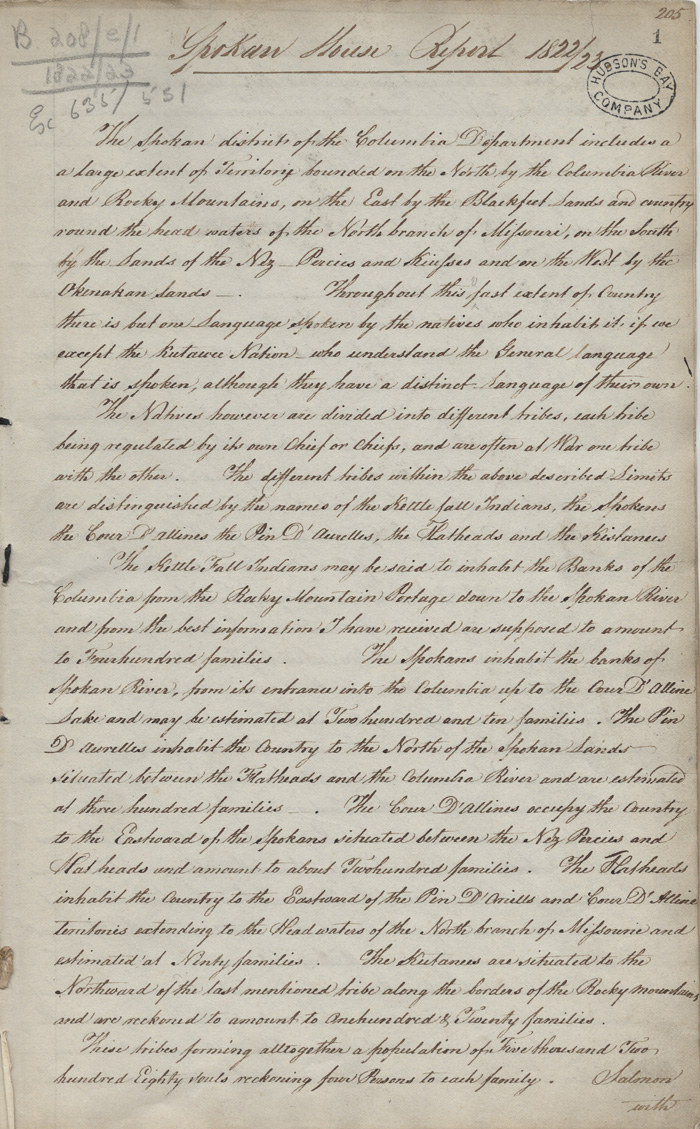 205
1
B 208/e/1
1822/23
635/551
Spokan House Report 1822/23
HUDSON'S BAY COMPANY
The Spokan district of the Columbia Department includes a
a large extent of Territory bounded on the North by the Columbia River
and Rocky Mountains, on the East by the Blackfeet Lands and country
round the head waters of the North branch of Missouri, on the South
by the Lands of the Nez Percies and Kiusses and on the West by the
Okenakan Lands — . Throughout this fast extent of Country
there is but one Language spoken by the natives who inhabit it, if we
except the Kutawee Nation — who understand the General language
that is spoken, although they have a distinct Language of their own .
The Natives however are divided into different tribes, each tribe
being regulated by its own Chief or Chiefs, and are often at War one tribe
with the other . The different tribes within the above described Limits
are distinguished by the names of the Kettle fall Indians, the Spokens
the Cour D'allines the Pin D'Aurelles, the Flatheads and the Kistanees
The Kettle Fall Indians may be said to inhabit the Banks of the
Columbia from the Rocky Mountain Portage down to the Spokan River
and from the best information I have received are supposed to amount
to Fourhundred families . The Spokans inhabit the banks of
Spokan River, from its entrance into the Columbia up to the Cour D'Alline
Lake and may be estimated at Two hundred and ten families . The Pin
D'aurelles inhabit the Country to the North of the Spokan Lands
situated between the Flatheads and the Columbia River and are estimated
at three hundred families — . The Cour D'Allines occupy the Country
to the Eastward of the Spokans situated between the Nez Percies and
Flat heads and amount to about Twohundred families . The Flatheads
inhabit the Country to the Eastward of the Pin D'Orielles and Cour D'Alline
territories extending to the Head waters of the North branch of Missourie and
estimated at Ninty families . The Kutanees are situated to the
Northward of the last mentioned tribe along the borders of the Rocky mountains
and are reckoned to amount to Onehundred & Twenty families .
These tribes forming alltogether a population of Five thousand Two
hundred Eighty souls reckoning four Persons to each family . Salmon
with